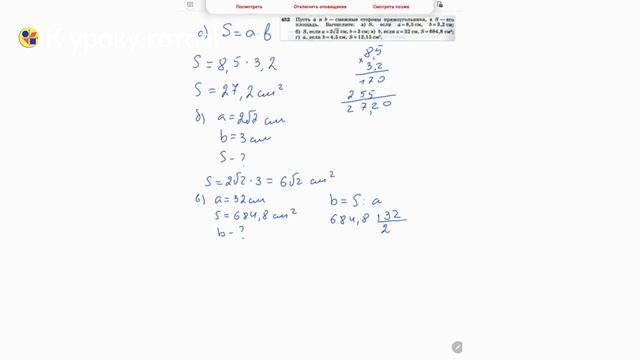 Посмотреть Отключить оповещения Смотреть позже
К уроку готов!
452 Пусть a и b — смежные стороны прямоугольника, а S — его
площадь. Вычислите: а) S, если a = 8,5 см, b = 3,2 см;
б) S, если a = 2√2 см, b = 3 см; в) b, если a = 32 см, S = 684,8 см²;
г) a, если b = 4,5 см, S = 12,15 см².
а) S = a · b
S = 8,5 · 3,2
S = 27,2 см²
8,5
× 3,2
170
255
27,20
б) a = 2√2 см
b = 3 см
S - ?
S = 2√2 · 3 = 6√2 см²
в) a = 32 см
S = 684,8 см²
b - ?
b = S : a
684,8 32
2